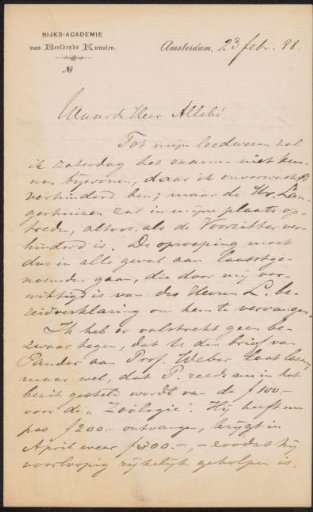 RIJKS-ACADEMIE
van Beeldende Kunsten.
No
Amsterdam, 23 febr. 88.
Waarde Heer Allebé
Tot mijn leedwezen zal
ik zaterdag het examen niet kun-
nen bijwonen, daar ik onverwacht
verhinderd ben; maar de Hr. Lan-
gerhuizen zal in mijne plaats op-
treden, althans als de Voorzitter ver-
hinderd is. De oproeping moet
dus in alle geval aan laatstge-
noemden gaan, die door mij ver-
wittigd is van des Heeren L. be-
reidverklaring om hem te vervangen.
Ik heb er volstrekt geen be-
zwaar tegen, dat U den brief van
Pander aan Prof. Weber laat lezen,
maar wel, dat P reeds nu in het
bezit gesteld wordt van de f 100.-
voor de "Zoölogie". Hij heeft nu
pas f 200.- ontvangen, krijgt in
April weer f 300.-, - zoodat hij
voorloopig rijkelijk geholpen is.